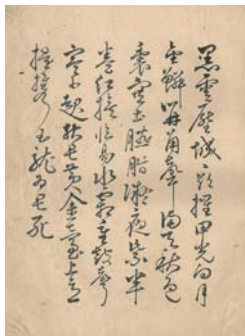 黑雲壓城城欲摧甲光向月
金鱗開角聲滿天秋色
裏塞土臙脂凝夜紫半
卷紅旗臨易水霜重鼓聲
寒不起報君黃金臺上意
提攜玉龍為君死